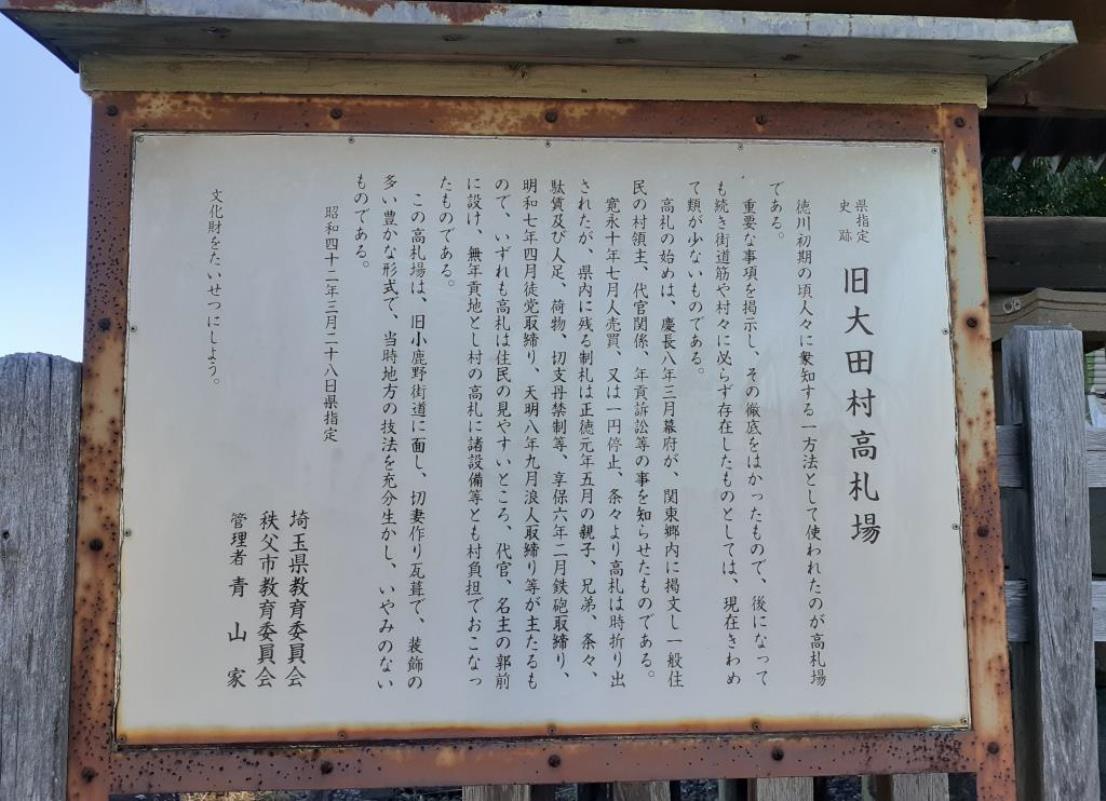 県指定
史跡
旧大田村高札場
徳川初期の頃人々に衆知する一方法として使われたのが高札場
である。
重要な事項を掲示し、その徹底をはかったもので、後になって
も続き街道筋や村々に必らず存在したものとしては、現在きわめ
て類が少ないものである。
高札の始めは、慶長八年三月幕府が、関東郷内に掲文し一般住
民の村領主、代官関係、年貢訴訟等の事を知らせたものである。
寛永十年七月人売買、又は一円停止、条々より高札は時折り出
されたが、県内に残る制札は正徳元年五月の親子、兄弟、条々、
駄賃及び人足、荷物、切支丹禁制等、享保六年二月鉄砲取締り、
明和七年四月徒党取締り、天明八年九月浪人取締り等が主たるも
ので、いずれも高札は住民の見やすいところ、代官、名主の郭前
に設け、無年貢地とし村の高札に諸設備等とも村負担でおこなっ
たものである。
この高札場は、旧小鹿野街道に面し、切妻作り瓦葺で、装飾の
多い豊かな形式で、当時地方の技法を充分生かし、いやみのない
ものである。
昭和四十二年三月二十八日県指定
埼玉県教育委員会
秩父市教育委員会
管理者 青山家
文化財をたいせつにしよう。